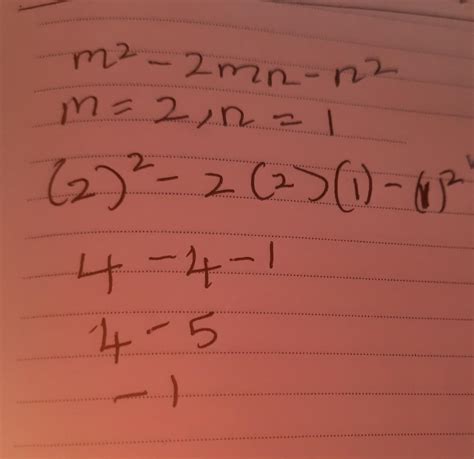 m² - 2mn - n²
m = 2, n = 1
(2)² - 2(2)(1) - (1)²
4 - 4 - 1
4 - 5
- 1